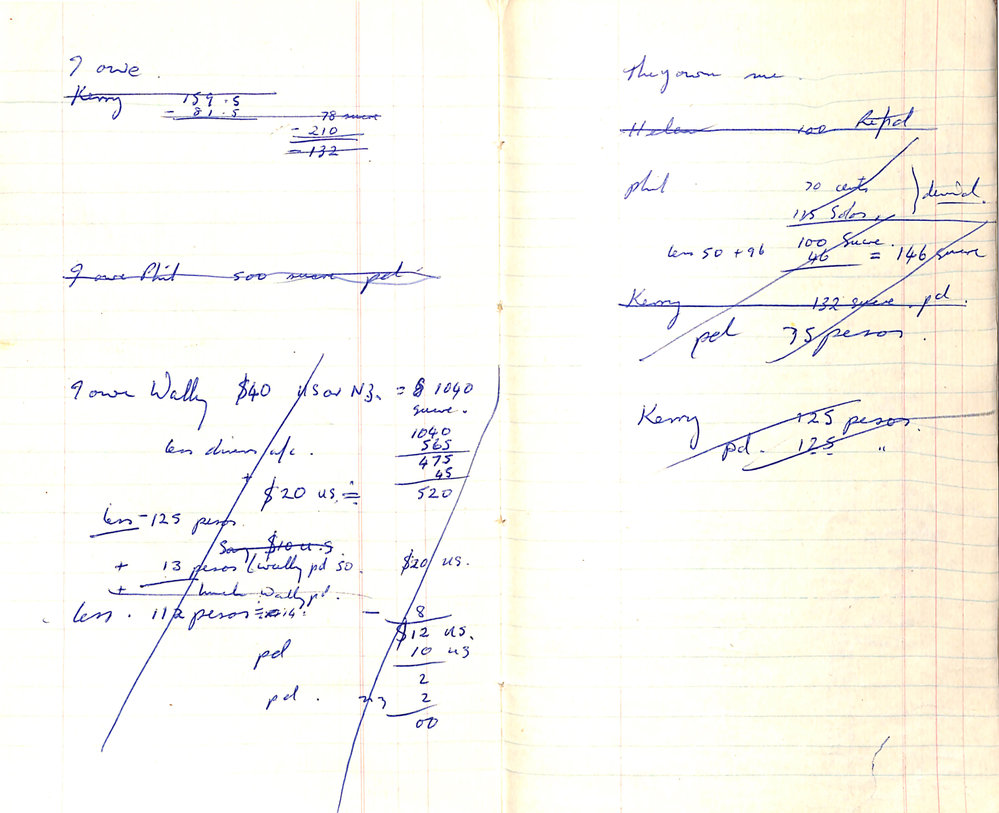 I owe.
Kerry 159.5
- 81.5 78 sucre
- 210
- 132
I owe Phil 500 sucre pd.
I owe Wally $40 US or NZ. = $ 1040
sucre.
1040
less diners a/c. 565
475
+ 45
$20 US. = 520
less - 125 pesos
Say $10 U.S.
+ 13 pesos (Wally pd so. $20 US.
+ lunch Wally pd.
less. 112 pesos = - 8
$12 US.
pd 10 US
2
pd. NZ 2
00
They own me.
Helen 100 Repd
Phil 70 cents } denied.
125 Soles.
100 Sucre.
less 50 + 96 46 = 146 sucre
Kerry 132 sucre. pd.
pd 75 pesos.
Kerry 125 pesos.
pd. 125 "